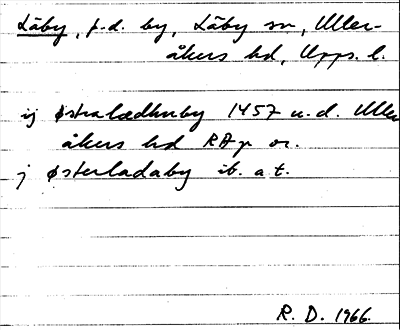 Läby, f.d. by, Läby sn, Uller-
åkers hd, Upps. l.
ij østralædhuby 1457 u.d. Uller
åkers hd RAp or.
j østerladaby ib. a.t.
R. D. 1966.